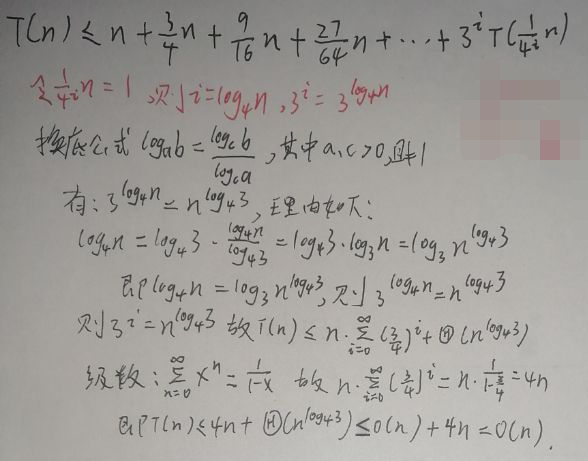 T(n) ≤ n + 3/4 n + 9/16 n + 27/64 n + ⋯ + 3^i T(1/4^i n)
令 1/4^i n = 1 ,则 i = log₄n , 3^i = 3^(log₄n)
换底公式 log_a b = log_c b / log_c a , 其中 a, c > 0, 且≠1
有: 3^(log₄n) = n^(log₄3) , 理由如下:
log₄n = log₄3 · log₄n / log₄3 = log₄3 · log₃n = log₃ n^(log₄3)
即 log₄n = log₃ n^(log₄3) , 则 3^(log₄n) = n^(log₄3)
则 3^i = n^(log₄3) 故 T(n) ≤ n · ∑_{i=0}^{∞} (3/4)^i + Θ(n^(log₄3))
级数: ∑_{n=0}^{∞} x^n = 1/(1-x) 故 n · ∑_{i=0}^{∞} (3/4)^i = n · 1/(1-3/4) = 4n
即 T(n) ≤ 4n + Θ(n^(log₄3)) ≤ o(n) + 4n = O(n).